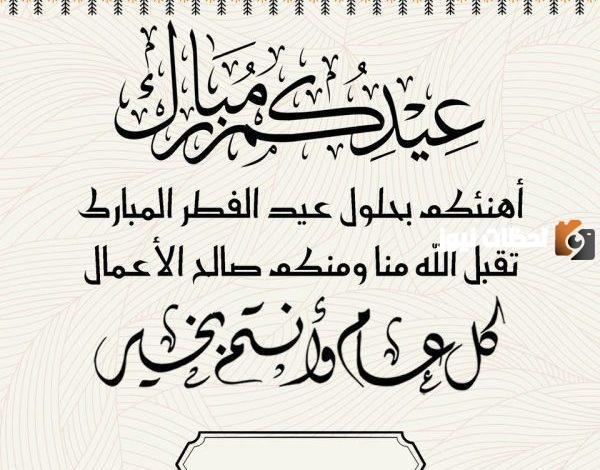 عِيْدُكُم مُبَارَك
أهنئكم بحلول عيد الفطر المبارك
تقبل الله منا ومنكم صالح الأعمال
كل عام وأنتم بخير
لحظات نيوز